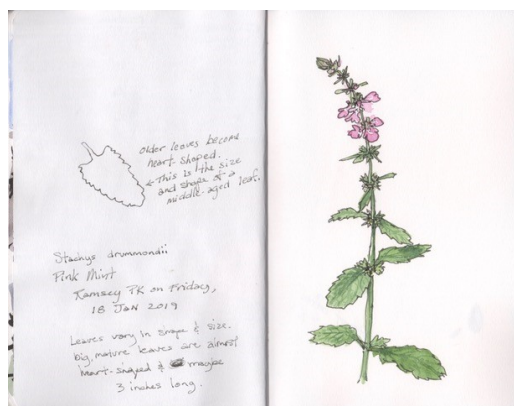 older leaves become
heart-shaped.
This is the size
and shape of a
middle-aged leaf.
Stachys drummondii
Pink Mint
Ramsey PK on Friday,
18 JAN 2019
Leaves vary in shape & size.
big, mature leaves are almost
heart-shaped & maybe
3 inches long.